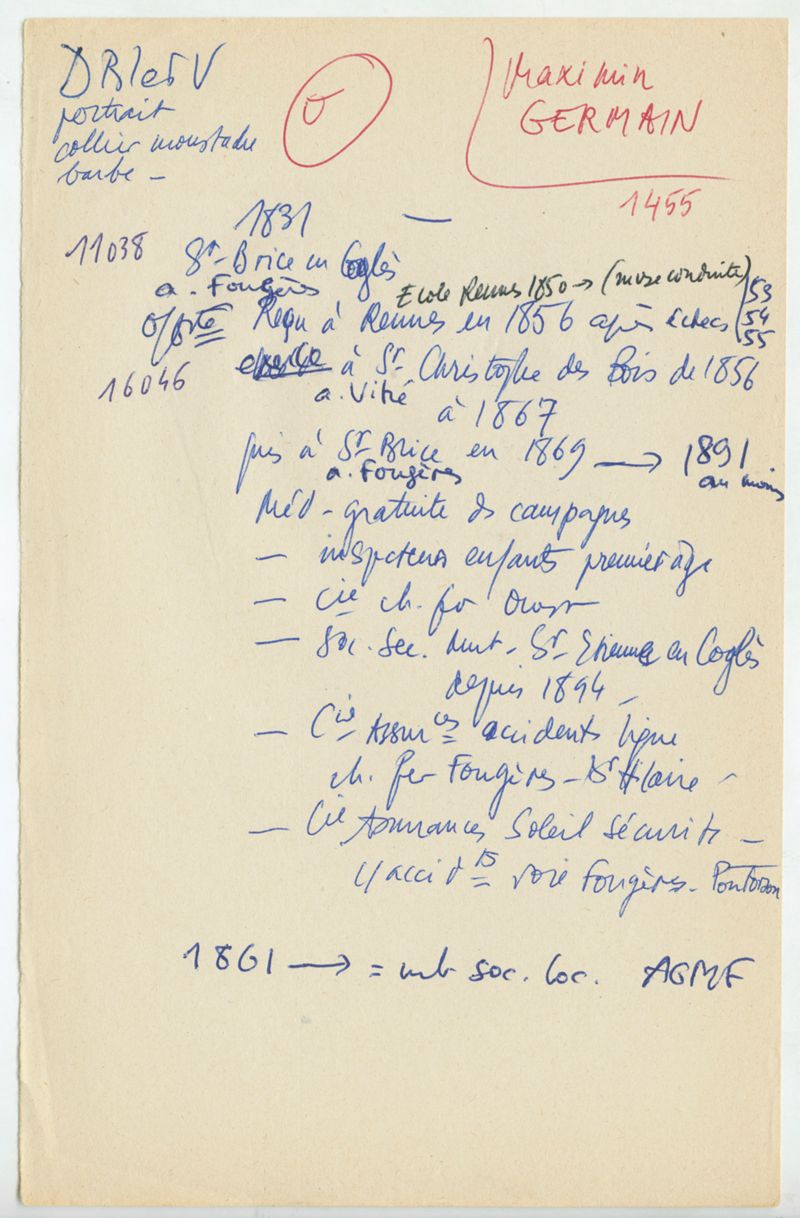 portrait
collier moustache
barbe -
Maximin
GERMAIN
1455
1831 —
11038
St-Brice en Coglès
a. Fougères
Ecole Rennes 1850 → (mvse conduite)
53
54
55
Reçu à Rennes en 1856 après échecs
16046
à St Christophe des Bois de 1856
a. Vitré
à 1867
puis à St-Brice en 1869 → 1891
a. Fougères
au moins
Méd - gratuite ds campagnes
— inspecteur enfants premier âge
— Cie ch. fer Ouest
— Soc. Sec. Mut - St Etienne en Coglès
depuis 1894 -
— Cie Assurces accidents ligne
ch. fer Fougères - St Hilaire -
— Cie Assurances Soleil Sécurité -
c/ accidts voie Fougères - Pontorson
1861 → = mb soc. loc. AGMF